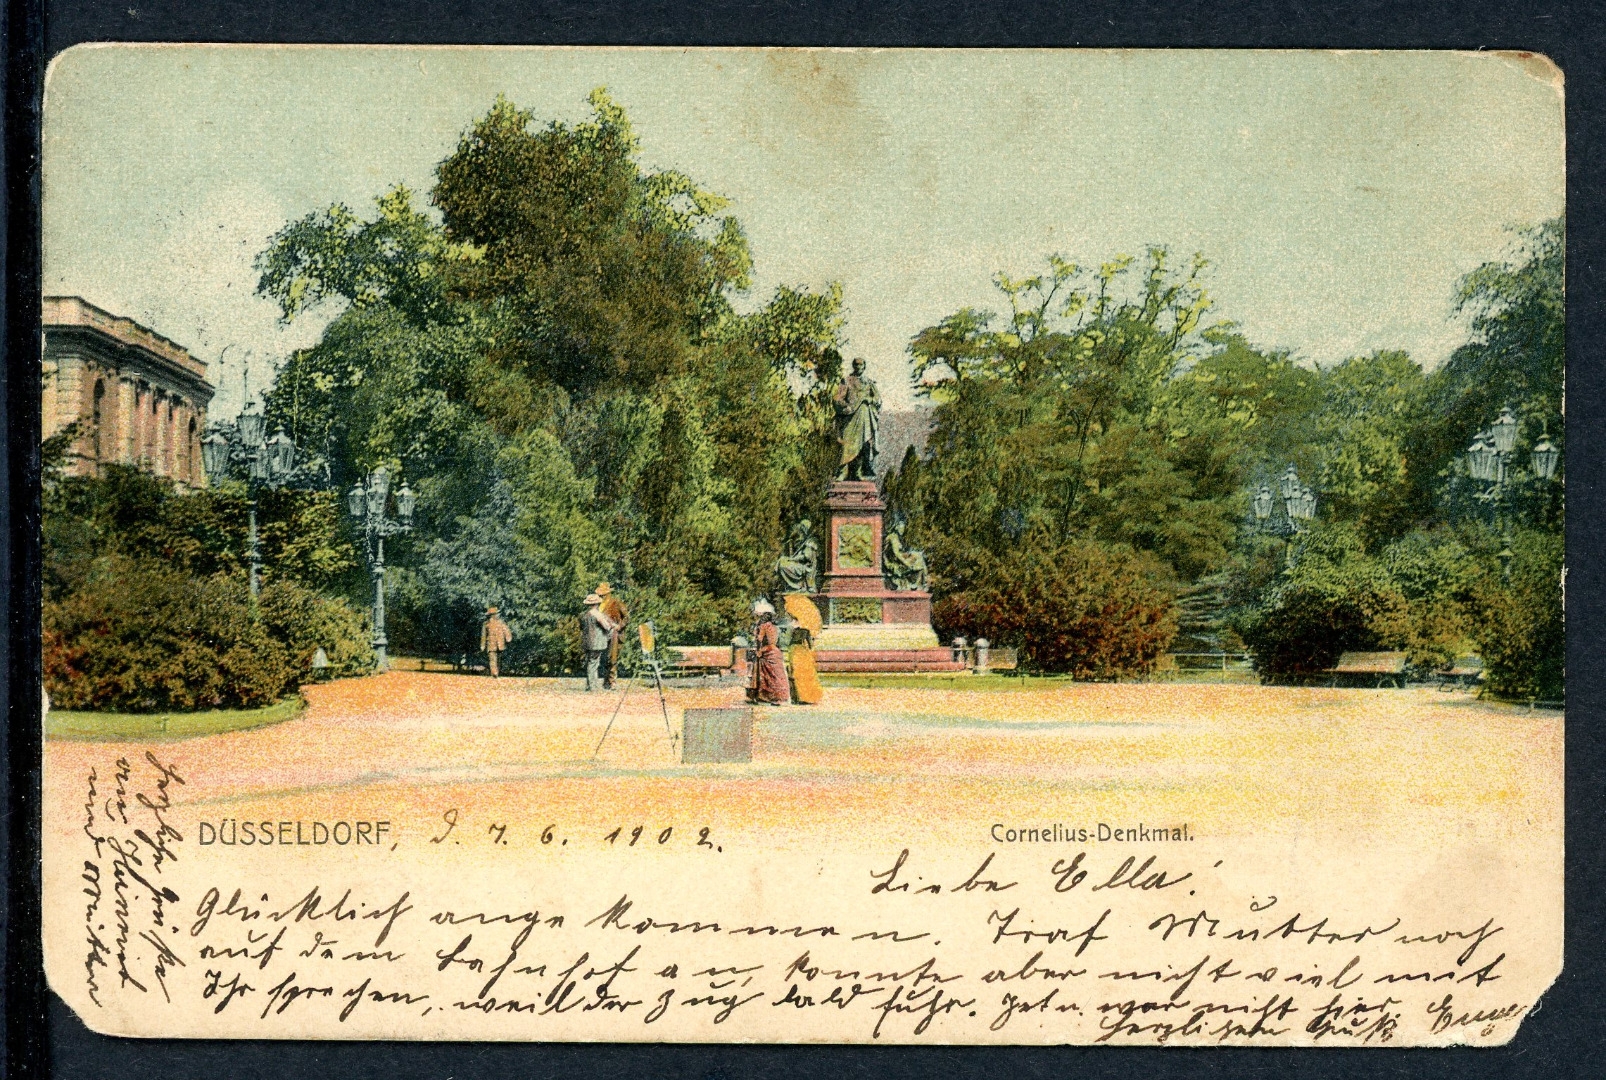 DÜSSELDORF, d. 7. 6. 1902.
Cornelius-Denkmal.
Liebe Ella!
Glücklich angekommen. Traf Mutter noch
auf dem Bahnhof an, konnte aber nicht viel mit
Ihr sprechen, weil der Zug bald fuhr. war nicht hier.
Herzlichen Gruß
Herzliche Grüße
von Heinrich
und Mutter